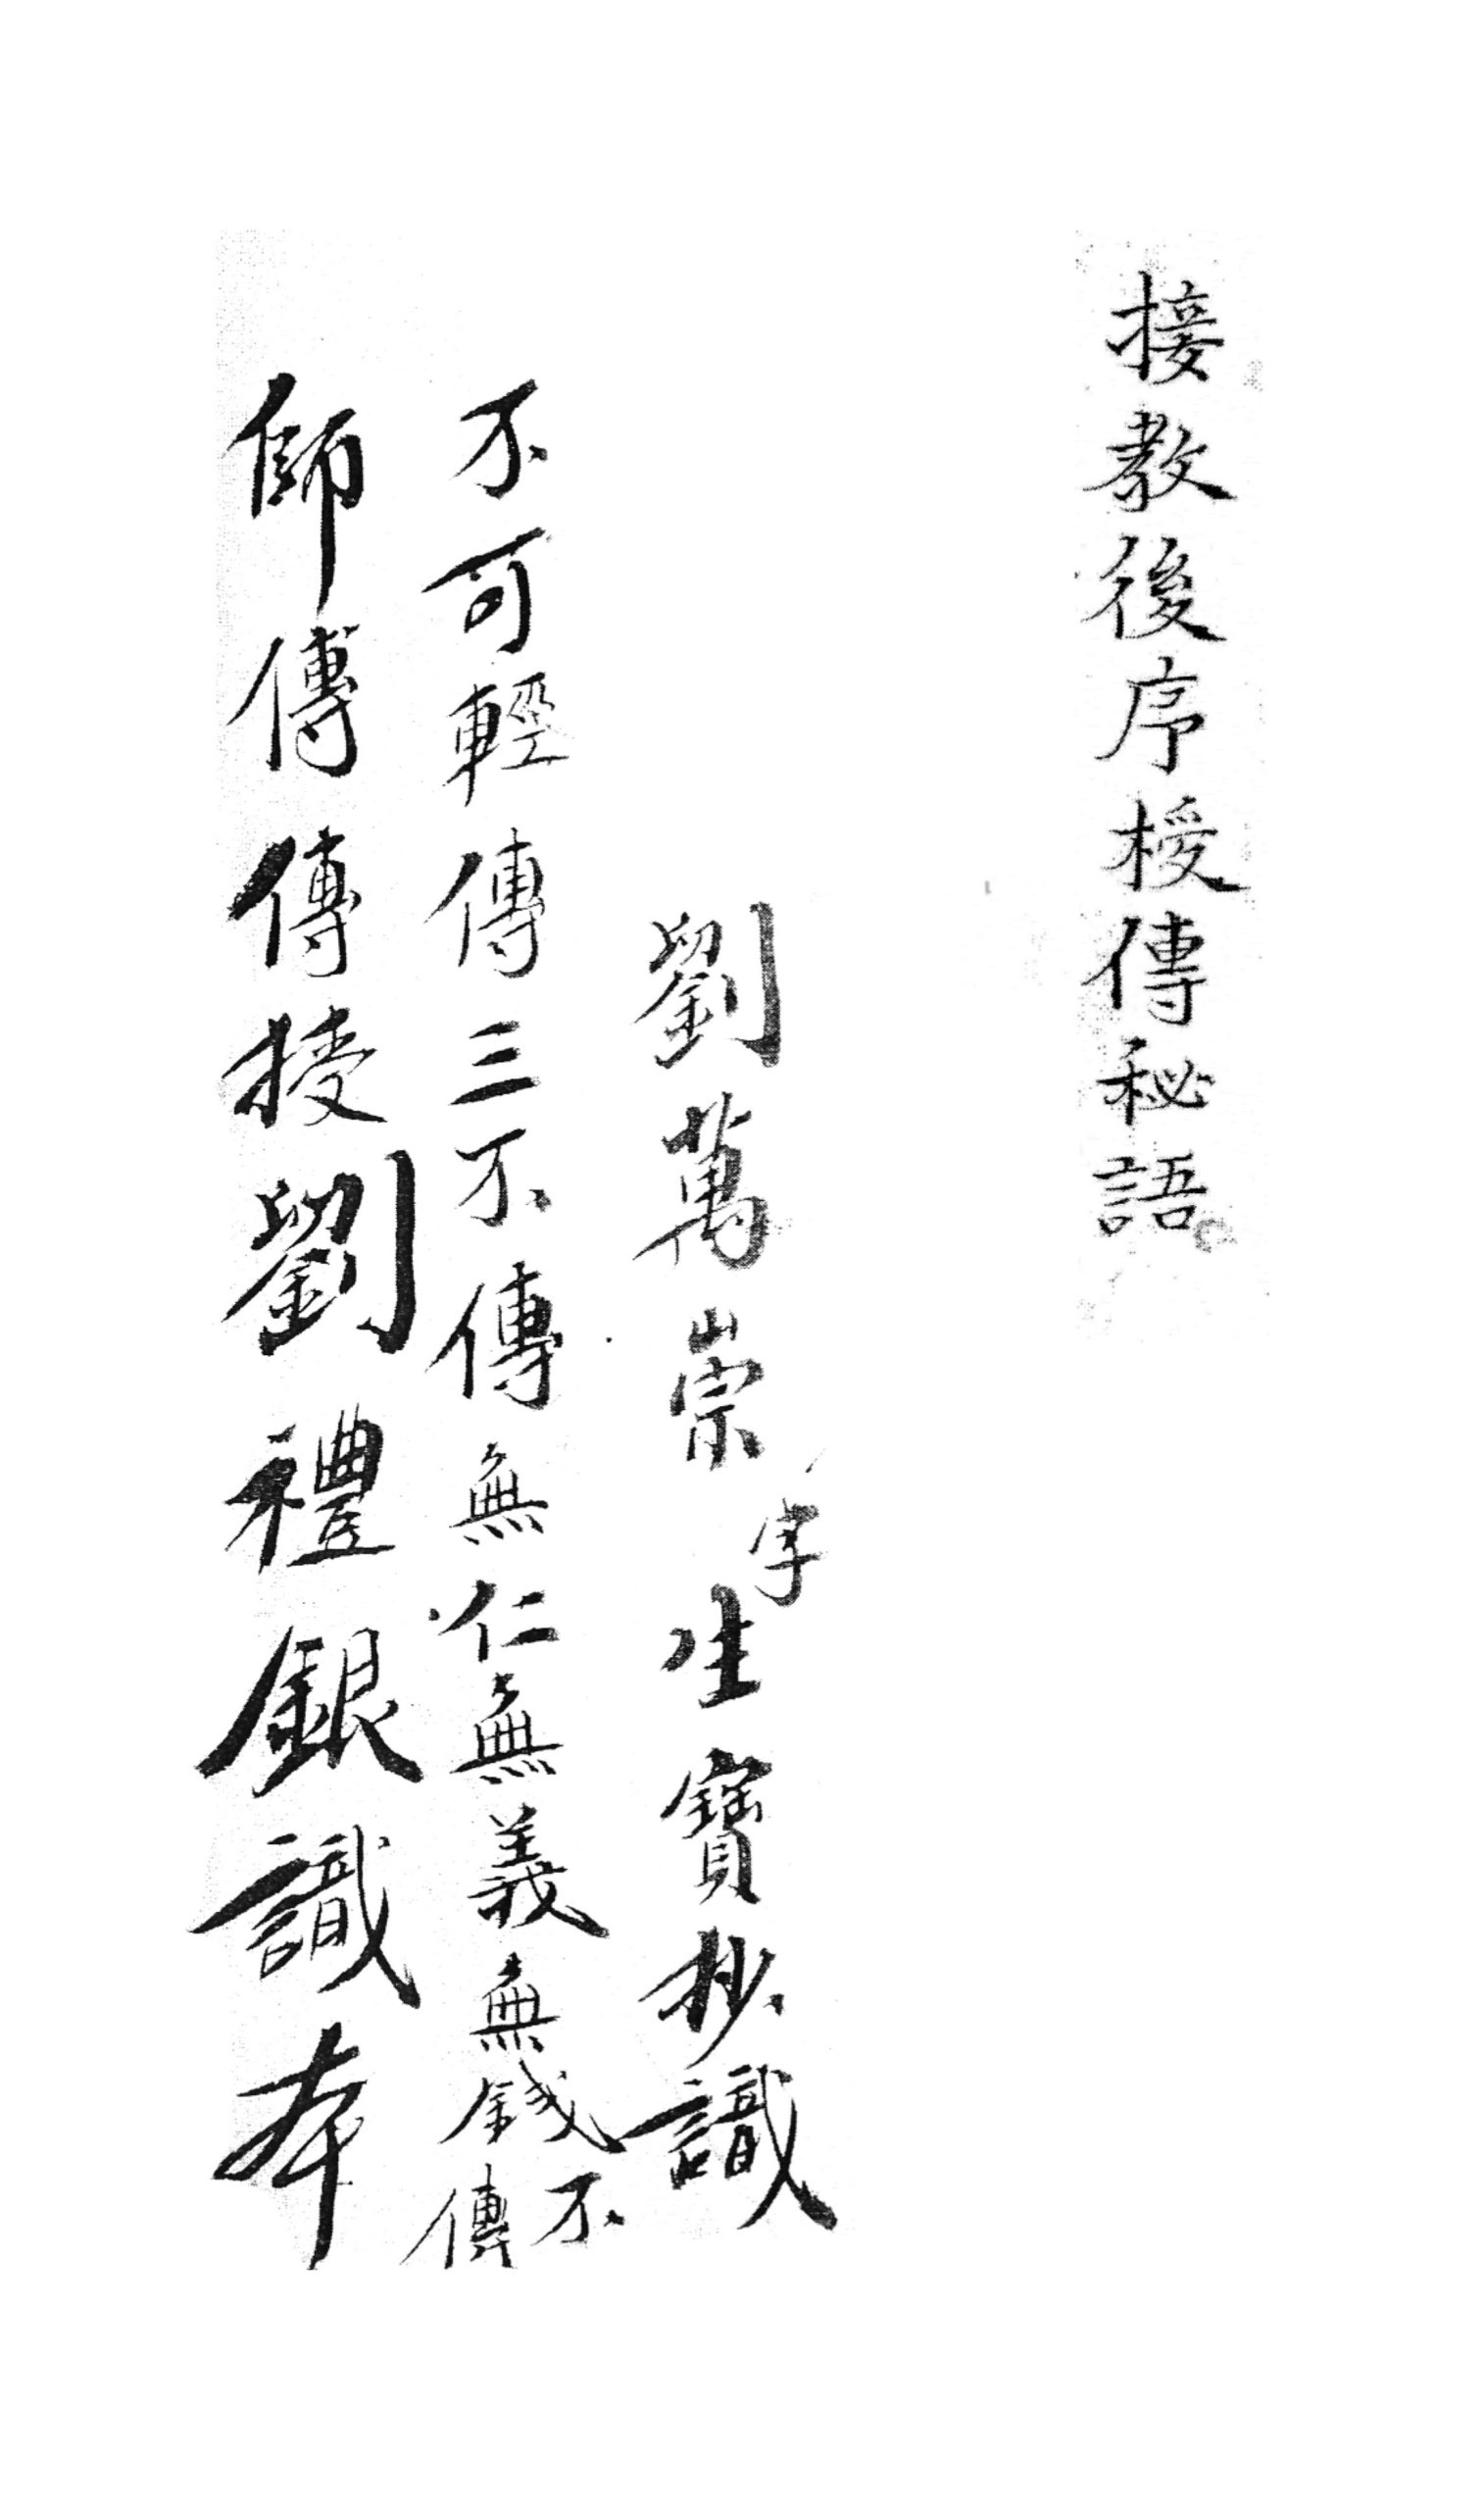 接教後序授傳秘語
劉萬崇字生寶抄識
不可輕傳三不傳無仁無義無錢不傳
師傳傳授劉禮銀識本